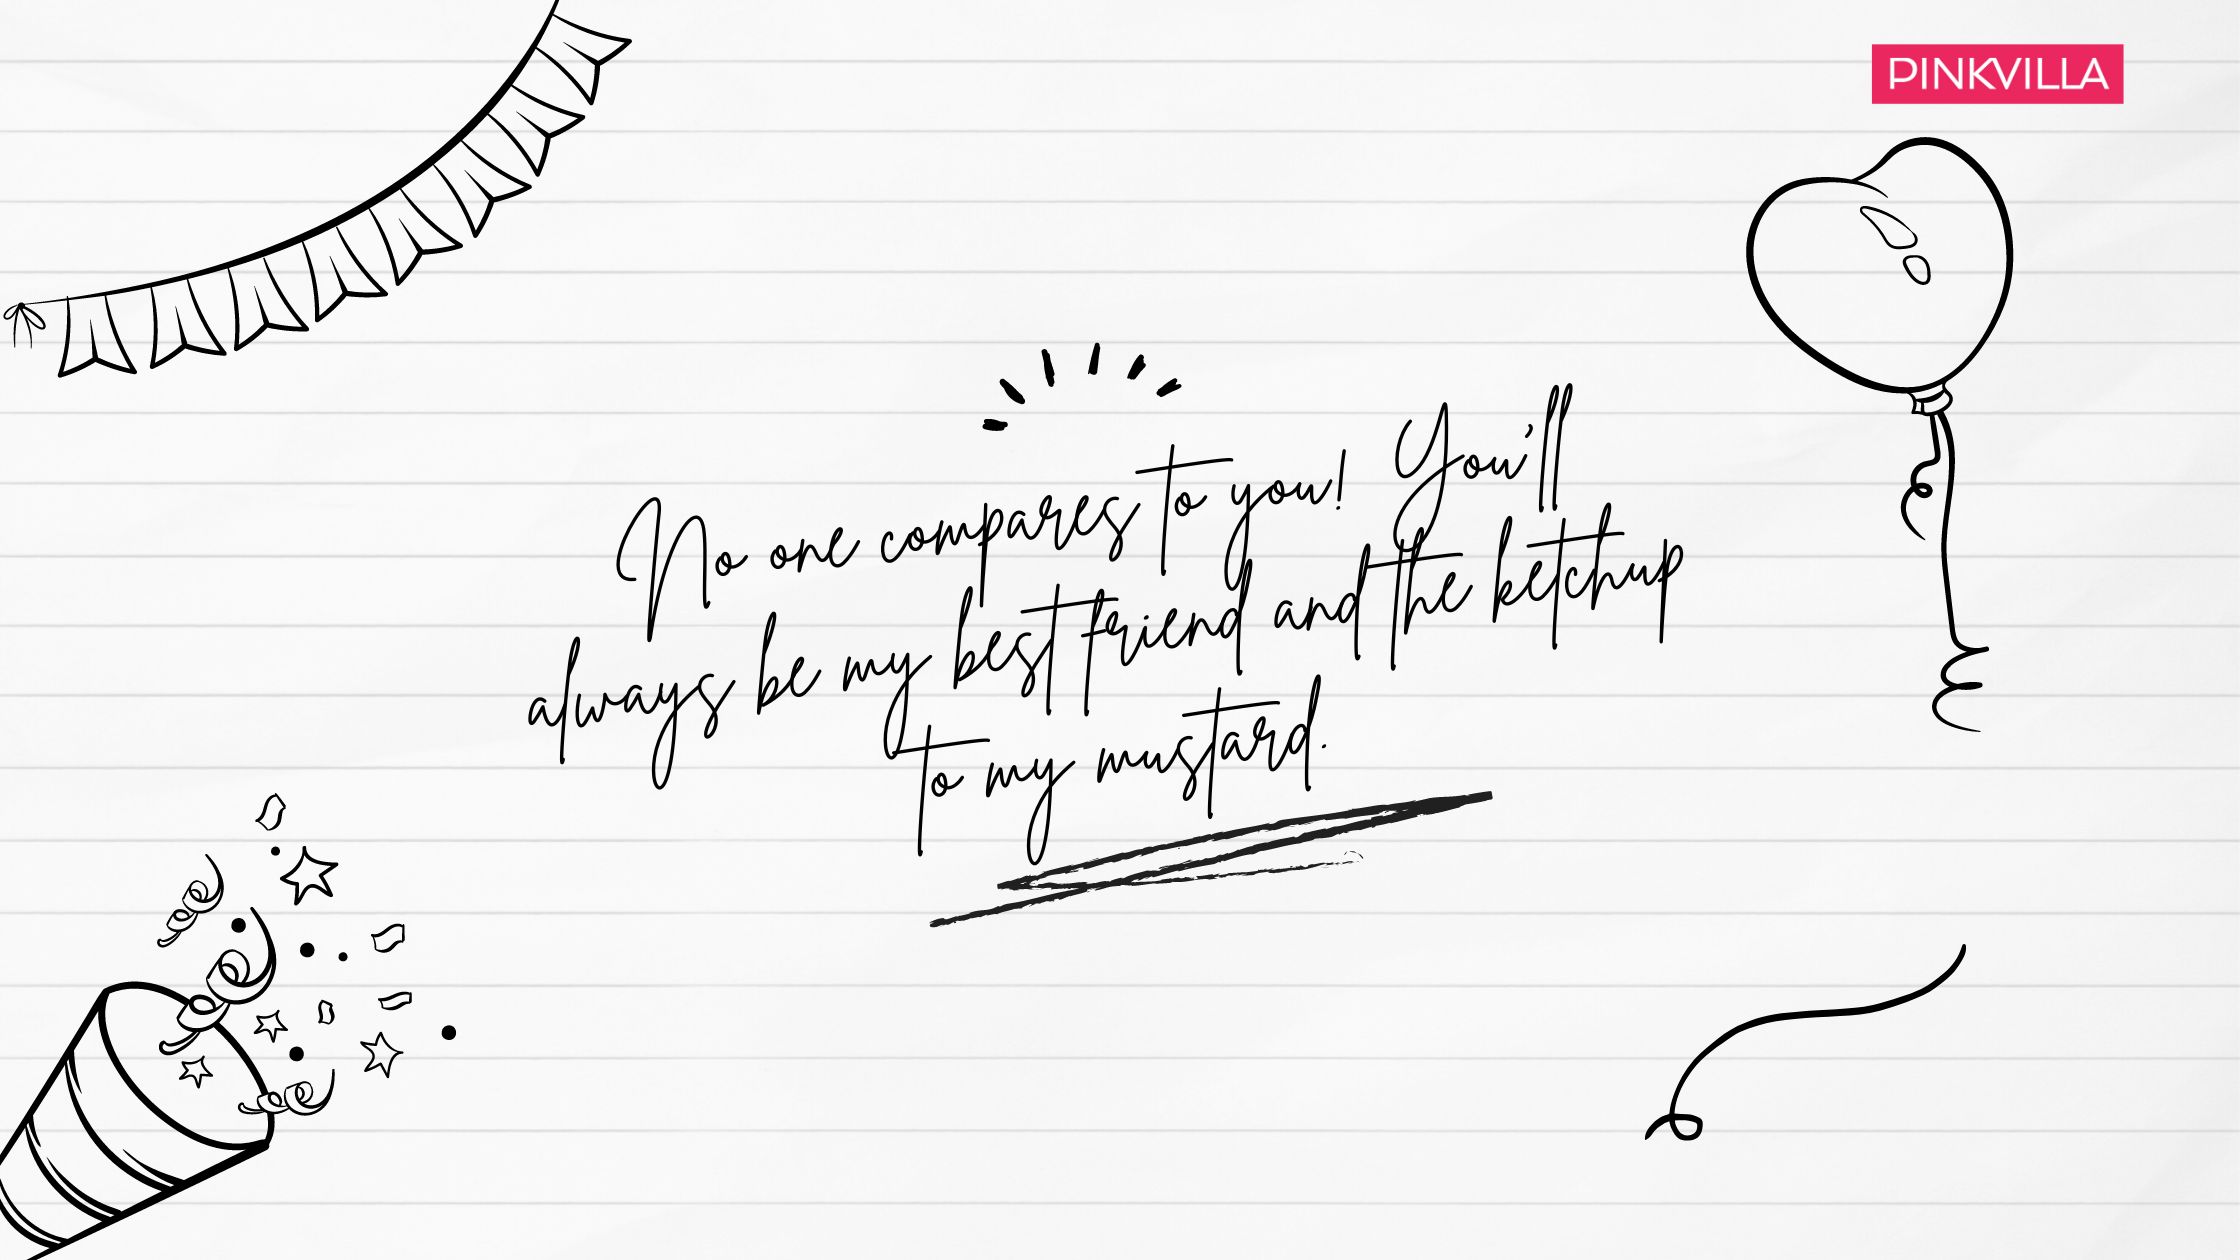 PINKVILLA
No one compares to you! You'll
always be my best friend and the ketchup
to my mustard.